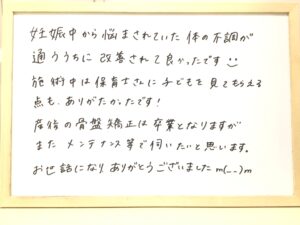 妊娠中から悩まされていた体の不調が
通ううちに改善されて良かったです
施術中は保育士さんに子どもを見てもらえる
点も、ありがたかったです!
産後の骨盤矯正は卒業となりますが
また メンテナンス等で伺いたいと思います。
お世話になり ありがとうございました m(_ _)m